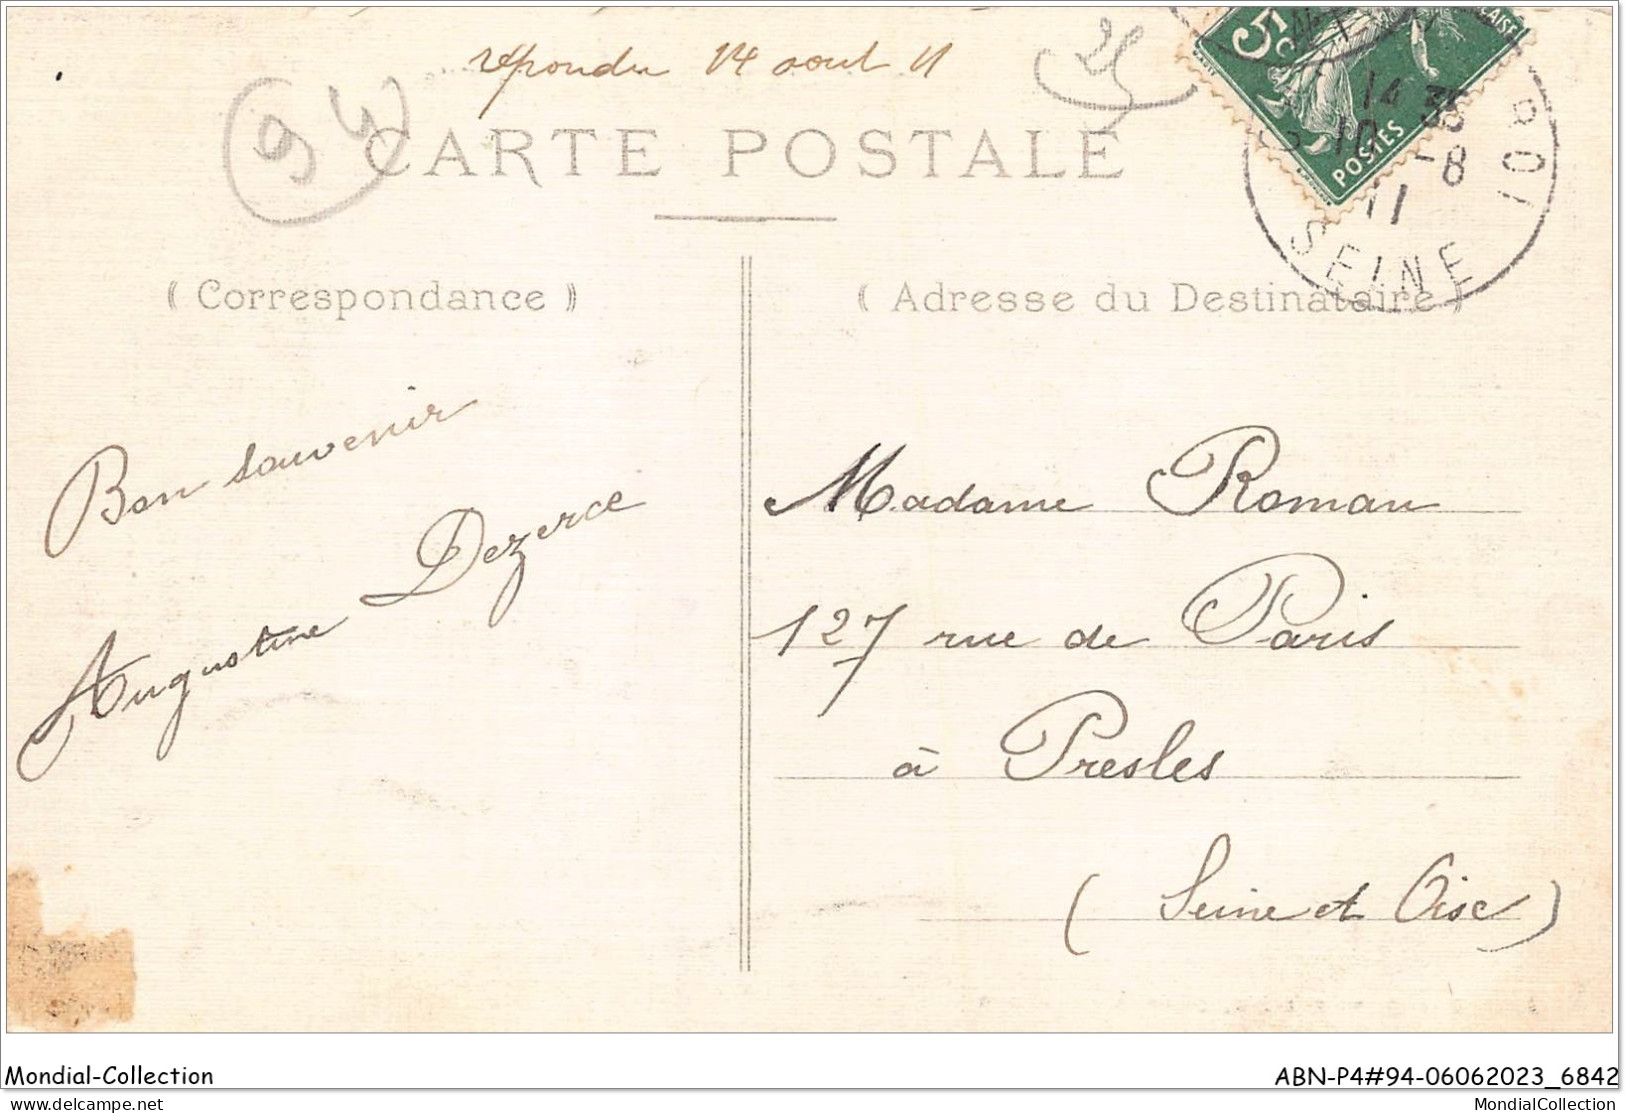 répondu 14 aout 11
25
94
CARTE POSTALE
5c
POSTES
14 35
10 -8
11
ROI
SEINE
( Correspondance )
( Adresse du Destinataire )
Bon souvenir
Augustine Dezerce
Madame Roman
127 rue de Paris
à Presles
( Seine et Oise )
Mondial-Collection
ABN-P4#94-06062023_6842
delcampe.net
MondialCollection